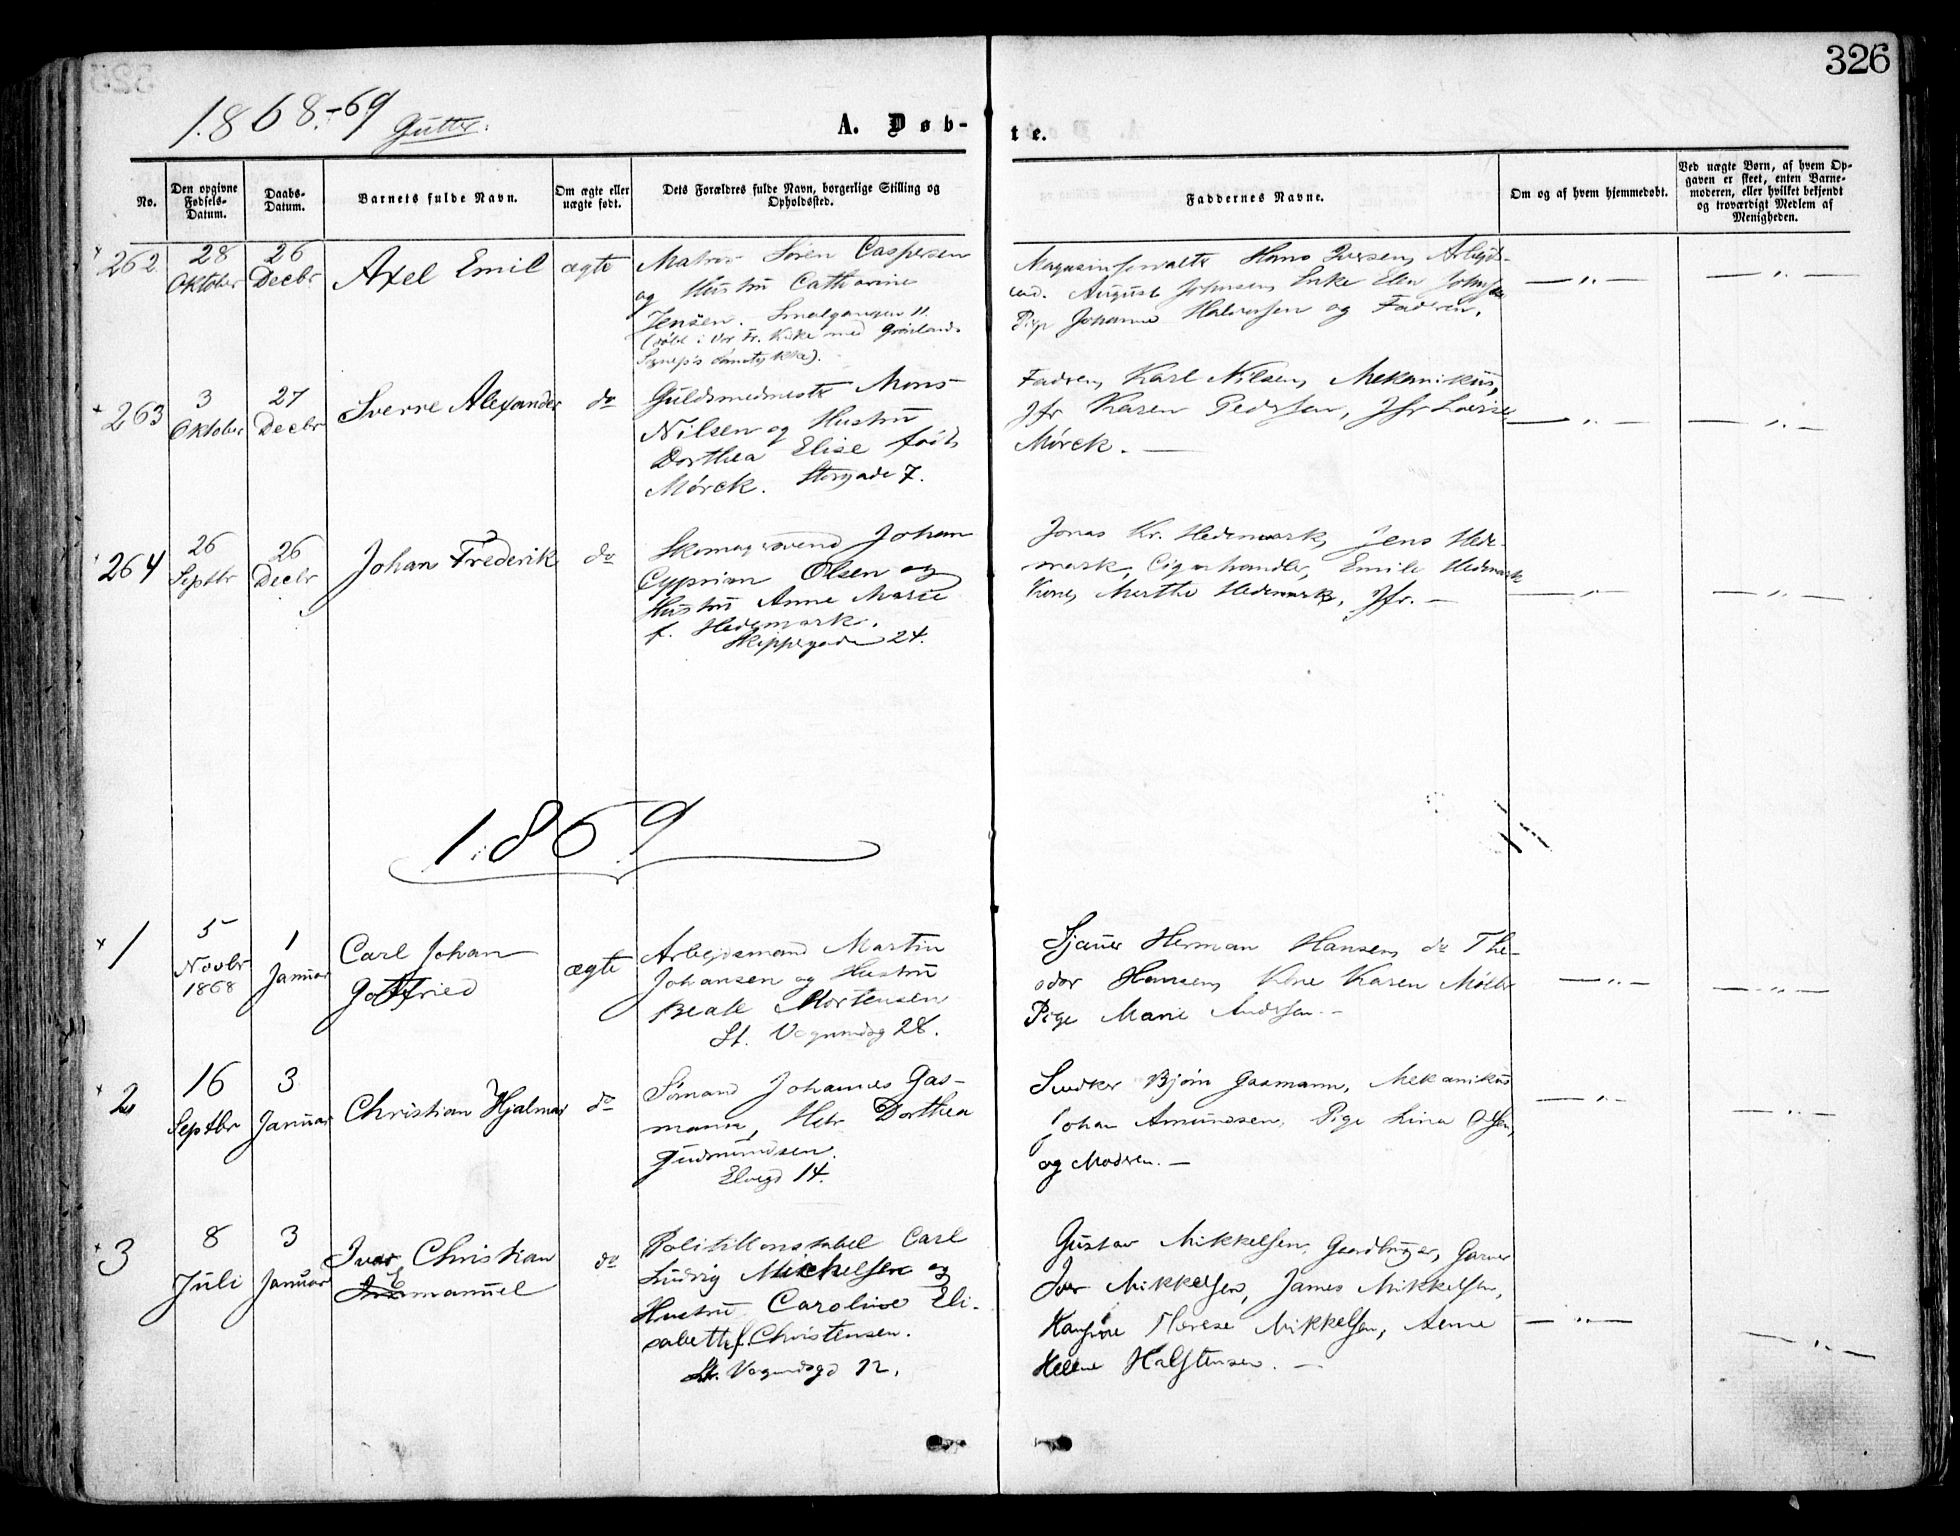 326
1868-69 Gutter.
A. Døb-
te.
No.
Den opgivne Fødsels-Datum.
Daabs-Datum.
Barnets fulde Navn.
Om ægte eller uægte født.
Dets Forældres fulde Navn, borgerlige Stilling og Opholdssted.
Faddernes Navne.
Om og af hvem hjemmedøbt.
Ved uægte Børn, af hvem Op-
gaven er skeet, enten Barne-
moderen, eller hvilket bekjendt
og troværdigt Medlem af
Menigheden.
262
28 Oktober
26 Decbr
Axel Emil
ægte
Matros Søren Caspersen
og Hustru Catharine
Jensen. Smalgangen 11.
(døbt i Vor Fr. Kirke med Grønlands
Hans Iversen, Arbejds-
August Johnsen, Enke Elen
Pige Johanne Halvorsen og Fadren.
263
3 Oktober
27 Decbr
Sverre Alexander
do
Guldsmedmestr Mons
Nilsen og Hustru
Dorthea Elise født
Mørck. Storgade 7.
Fadren, Karl Nilsen, Mekanikus,
Jfr Karen Pedersen, Jfr Lovise
Mørck. —
264
26 Septbr
26 Decbr
Johan Frederik
do
Skomagersvend Johan
Cyprian Olsen og
Hustru Anne Marie
f. Hedemark.
Skippergaden 24.
Jonas Kr. Hedemark, Jens Hede-
mark, Cigarhandler, Emile Hedemark
Kone, Marthe Hedemark, Jfr. —
1869
1
5 Novbr 1868
1 Januar
Carl Johan
Gottfried
ægte
Arbejdsmand Martin
Johansen og Hustru
Beate Mortensen
St. Vognmdsg 28.
Sjauer Herman Hansen, do The-
odor Hansen, Kone Karen
Pige Marie Andersen. —
2
16 Septbr
3 Januar
Christian Hjalmar
do
Sømand Johannes Gas-
mann, Hstr Dorthea
Gudmundsen.
Elvegd 14.
Snedker Bjørn Gasmann, Mekanikus
Johan Amundsen, Pige Lina Olsen,
og Modren. —
3
8 Juli
3 Januar
Ivar Christian
Emanuel
do
Politikonstabel Carl
Ludvig Mickelsen og
Hustru Caroline Eli-
sabeth f. Christensen.
St. Vognmdsgd 12.
Gustav Mikkelsen, Gaardbruger, Garver
Ivar Mikkelsen, James Mikkelsen,
Therese Mikkelsen, Anne
Helene Halstensen. —